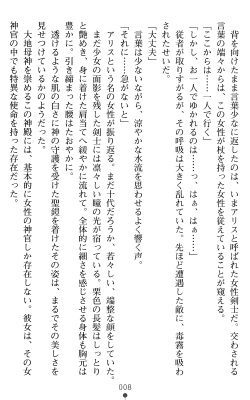 背を向けたまま言葉少なに返したのは、いまアリスと呼ばれた女性剣士だ。交わされる
言葉の端々からは、この女性が杖を持った女性を従えていることが窺える。
「ここからは……一人で行く」
「しかし、お一人でゆかれるのは……っ　はぁ……はぁっ」
従者が取りすがるが、その呼吸は大きく乱れていた。先ほど遭遇した敵に、毒霧を吸わ
されたせいだ。
「大丈夫」
言葉は少ないながら、涼やかな水流を思わせるよく響く声。
「それに……急がないと」
アリスという名の女性が振り返る。まだ十代だろうか、若々しい、端整な顔をしていた。
まだ少女の面影を残した剣士には凛々しい瞳の光が宿っている。栗色の長髪はしっとり
と艶めき、身に着けた肩当てへ緩やかに流れて。全体的に細さを感じさせる身体も胸元は
豊かに。引き締まった腰はたおやかに。
透けるような肌の白さに神の守護を受けた聖鎧を着けたその姿は、まるでその美しさを
見せつけているかのようだ。
大地母神を崇めるこの神殿には、基本的に女性の神官しか存在しない。彼女は、その女
神官の中でも特異な使命を持った存在だった。
008